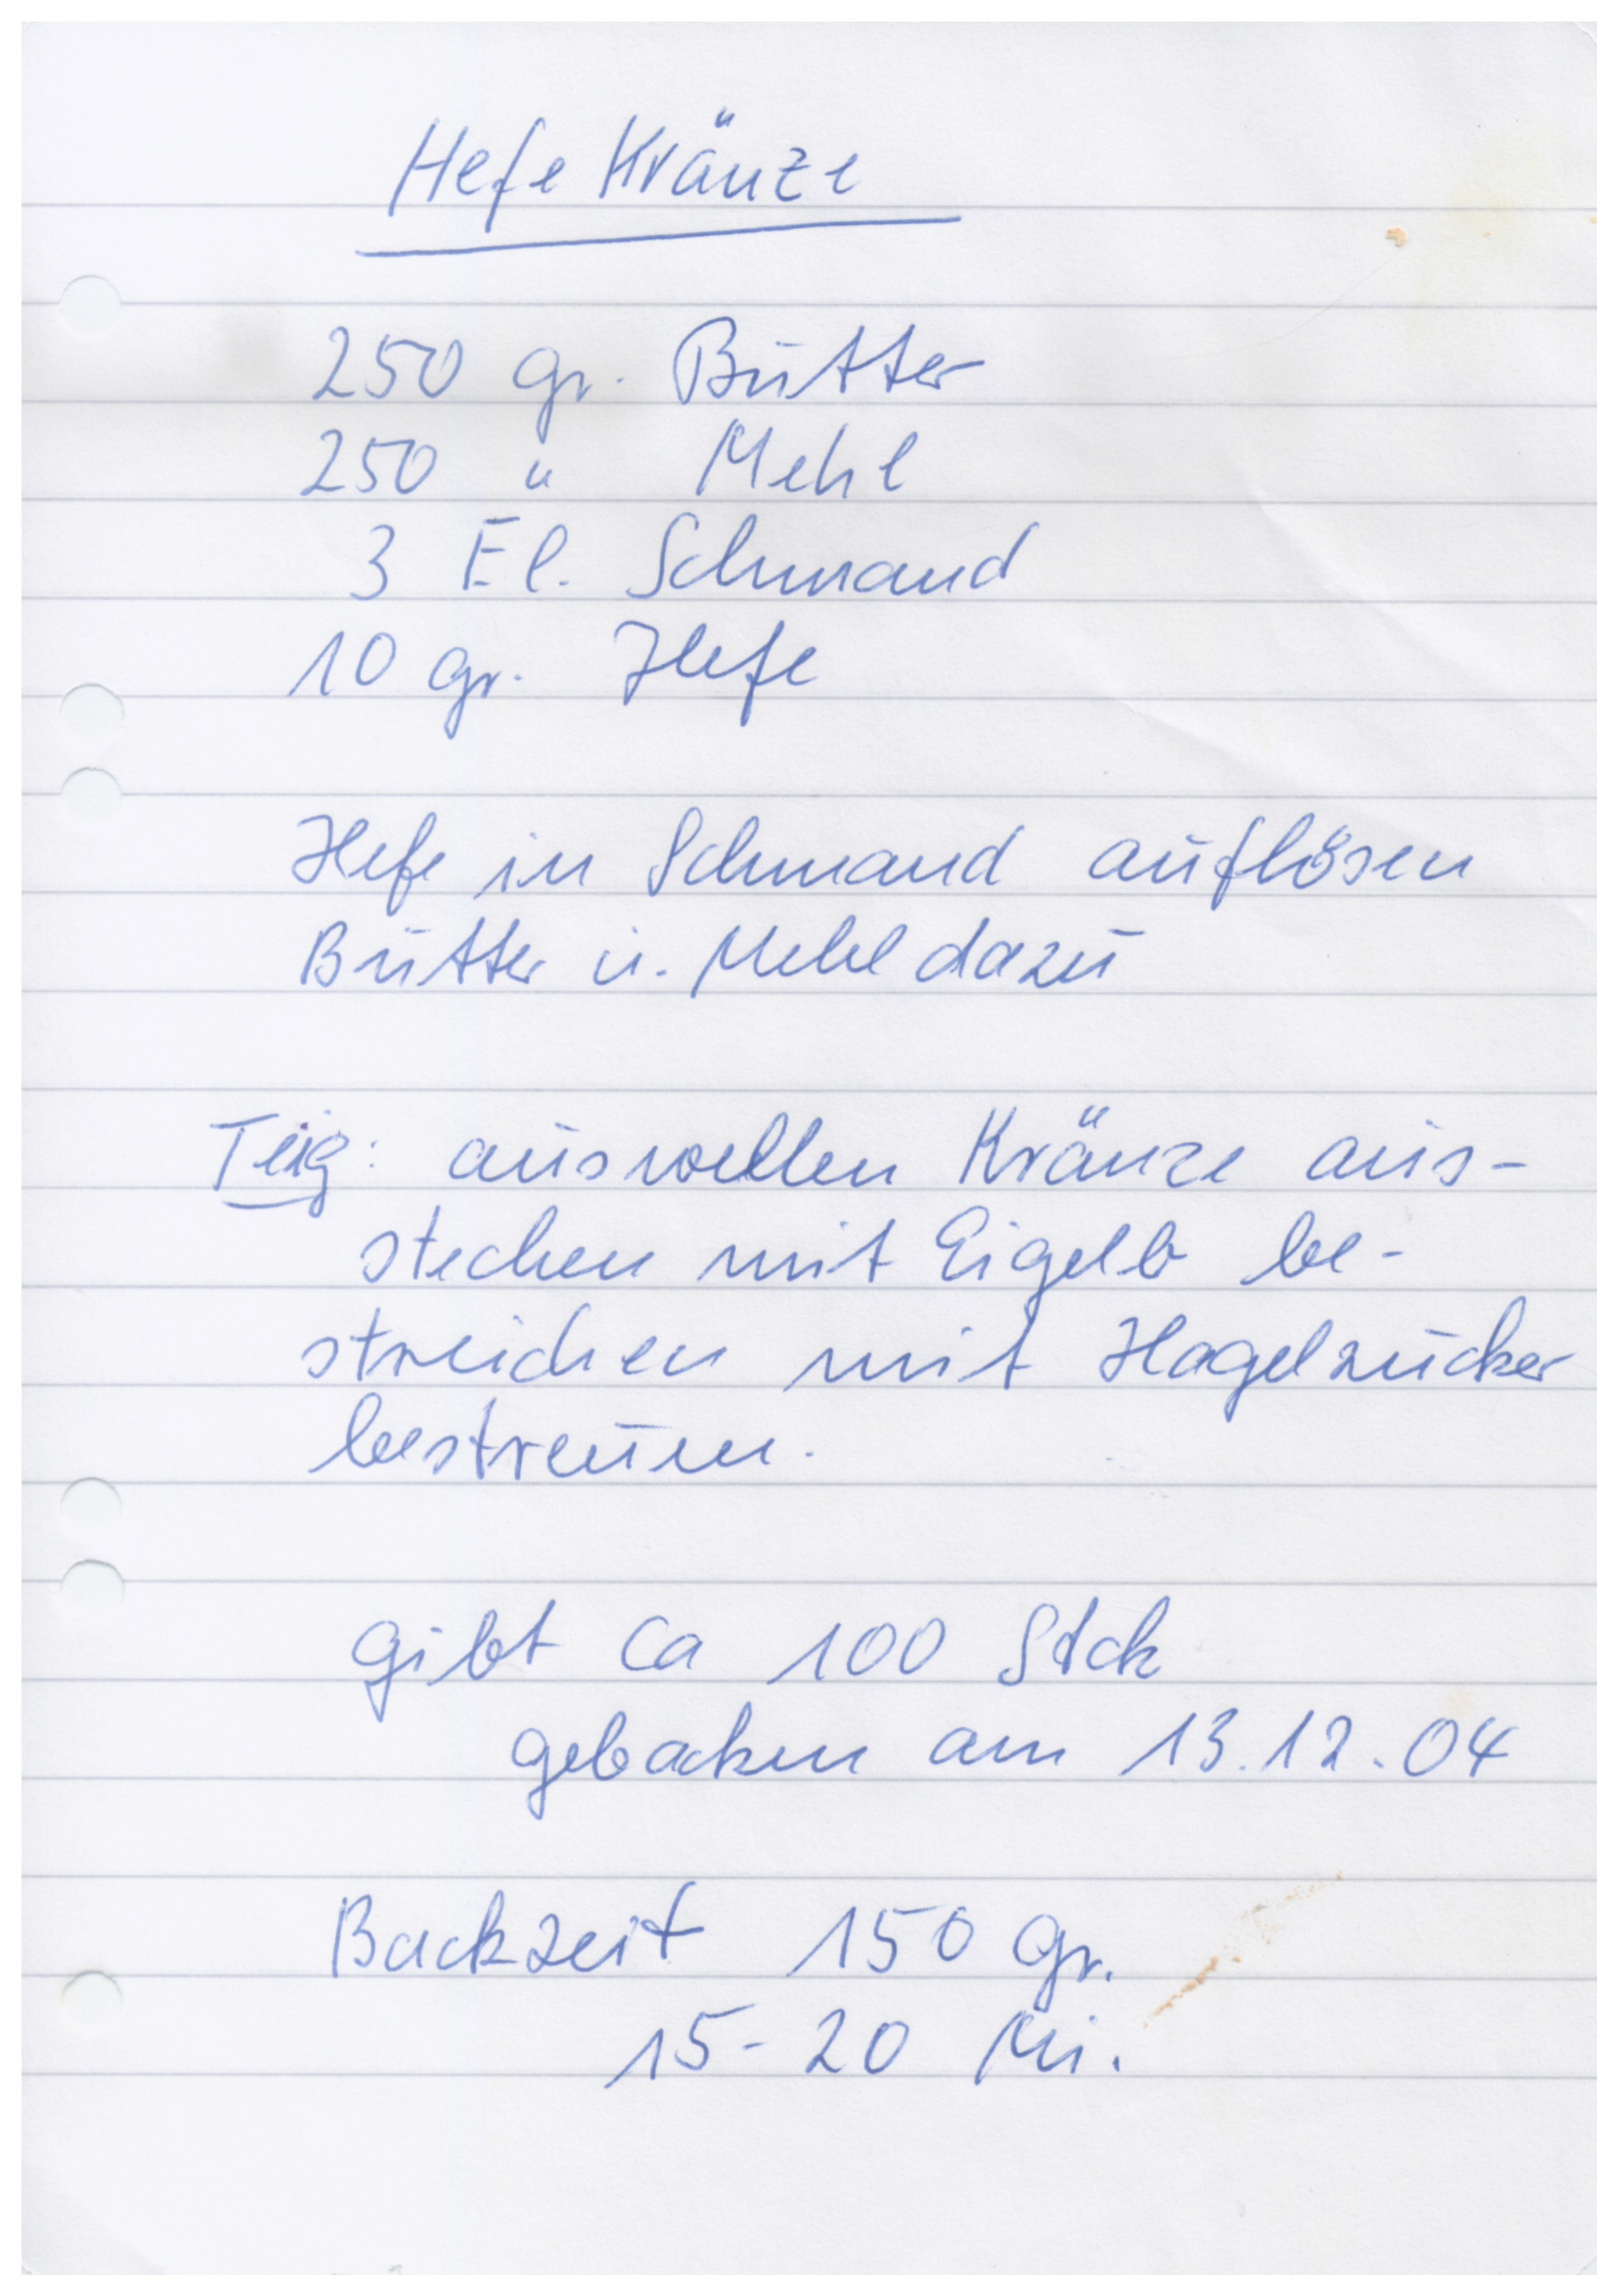 Hefe Kränze
250 gr. Butter
250 " Mehl
3 El. Schmand
10 gr. Hefe
Hefe in Schmand auflösen
Butter u. Mehl dazu
Teig: auswellen Kränze aus-
stechen mit Eigelb be-
streichen mit Hagelzucker
bestreuen.
gibt ca 100 Stck
gebacken am 13.12.04
Backzeit 150 gr.
15-20 Mi.